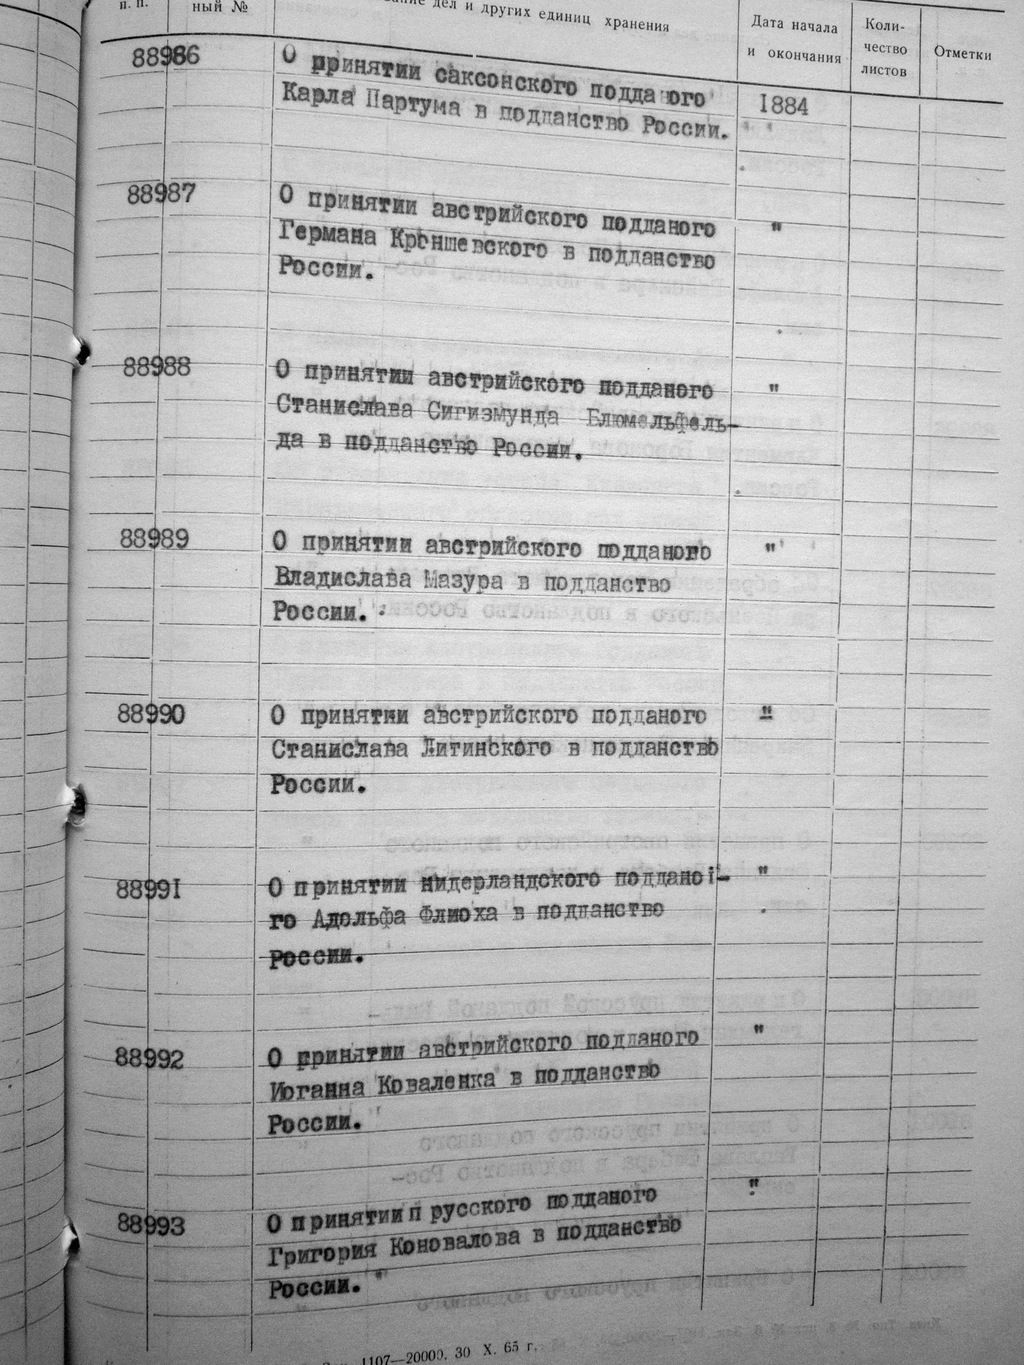 п. п.
ный №
дел и других единиц хранения
Дата начала
и окончания
Коли-
чество
листов
Отметки
88986
О принятии саксонского подданого
Карла Партума в подданство России.
1884
88987
О принятии австрийского подданого "
Германа в подданство
России.
88988
О принятии австрийского подданого "
Станислава Сигизмунда Блюмельфель-
да в подданство России.
88989
О принятии австрийского подданого "
Владислава Мазура в подданство
России.
88990
О принятии австрийского подданого "
Станислава Литинского в подданство
России.
88991
О принятии нидерландского поддано- "
го Адольфа Флиоха в подданство
России.
88992
О принятии австрийского подданого "
Иоганна Коваленка в подданство
России.
88993
О принятии прусского подданого "
Григория Коновалова в подданство
России.
1107—20000. 30 X. 65 г.